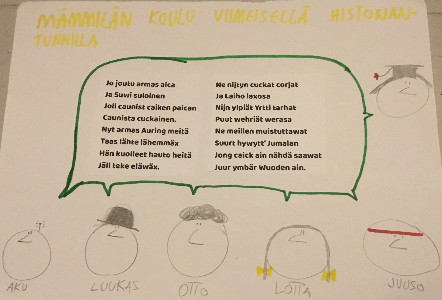 MÄMMILÄN KOULU VIIMEISELLÄ HISTORIAN-
TUNNILLA
Jo joutu armas aica
Ja Suwi suloinen
Joli caunist caiken paican
Caunista cuckainen.
Nyt armas Auring meitä
Taas lähte lähemmäx
Hän kuolleet hauto heitä
Jäll teke eläwäx.
Ne nijtyn cuckat corjat
Ja Laiho laxosa
Nijn yiplät Yrtti tarhat
Puut wehriät werasa
Ne meillen muistuttawat
Suurt hywytt' Jumalan
Jong caick ain nähdä saawat
Juur ymbär Wuoden ain.
AKU
LUUKAS
OTTO
LOTTA
JUUSO